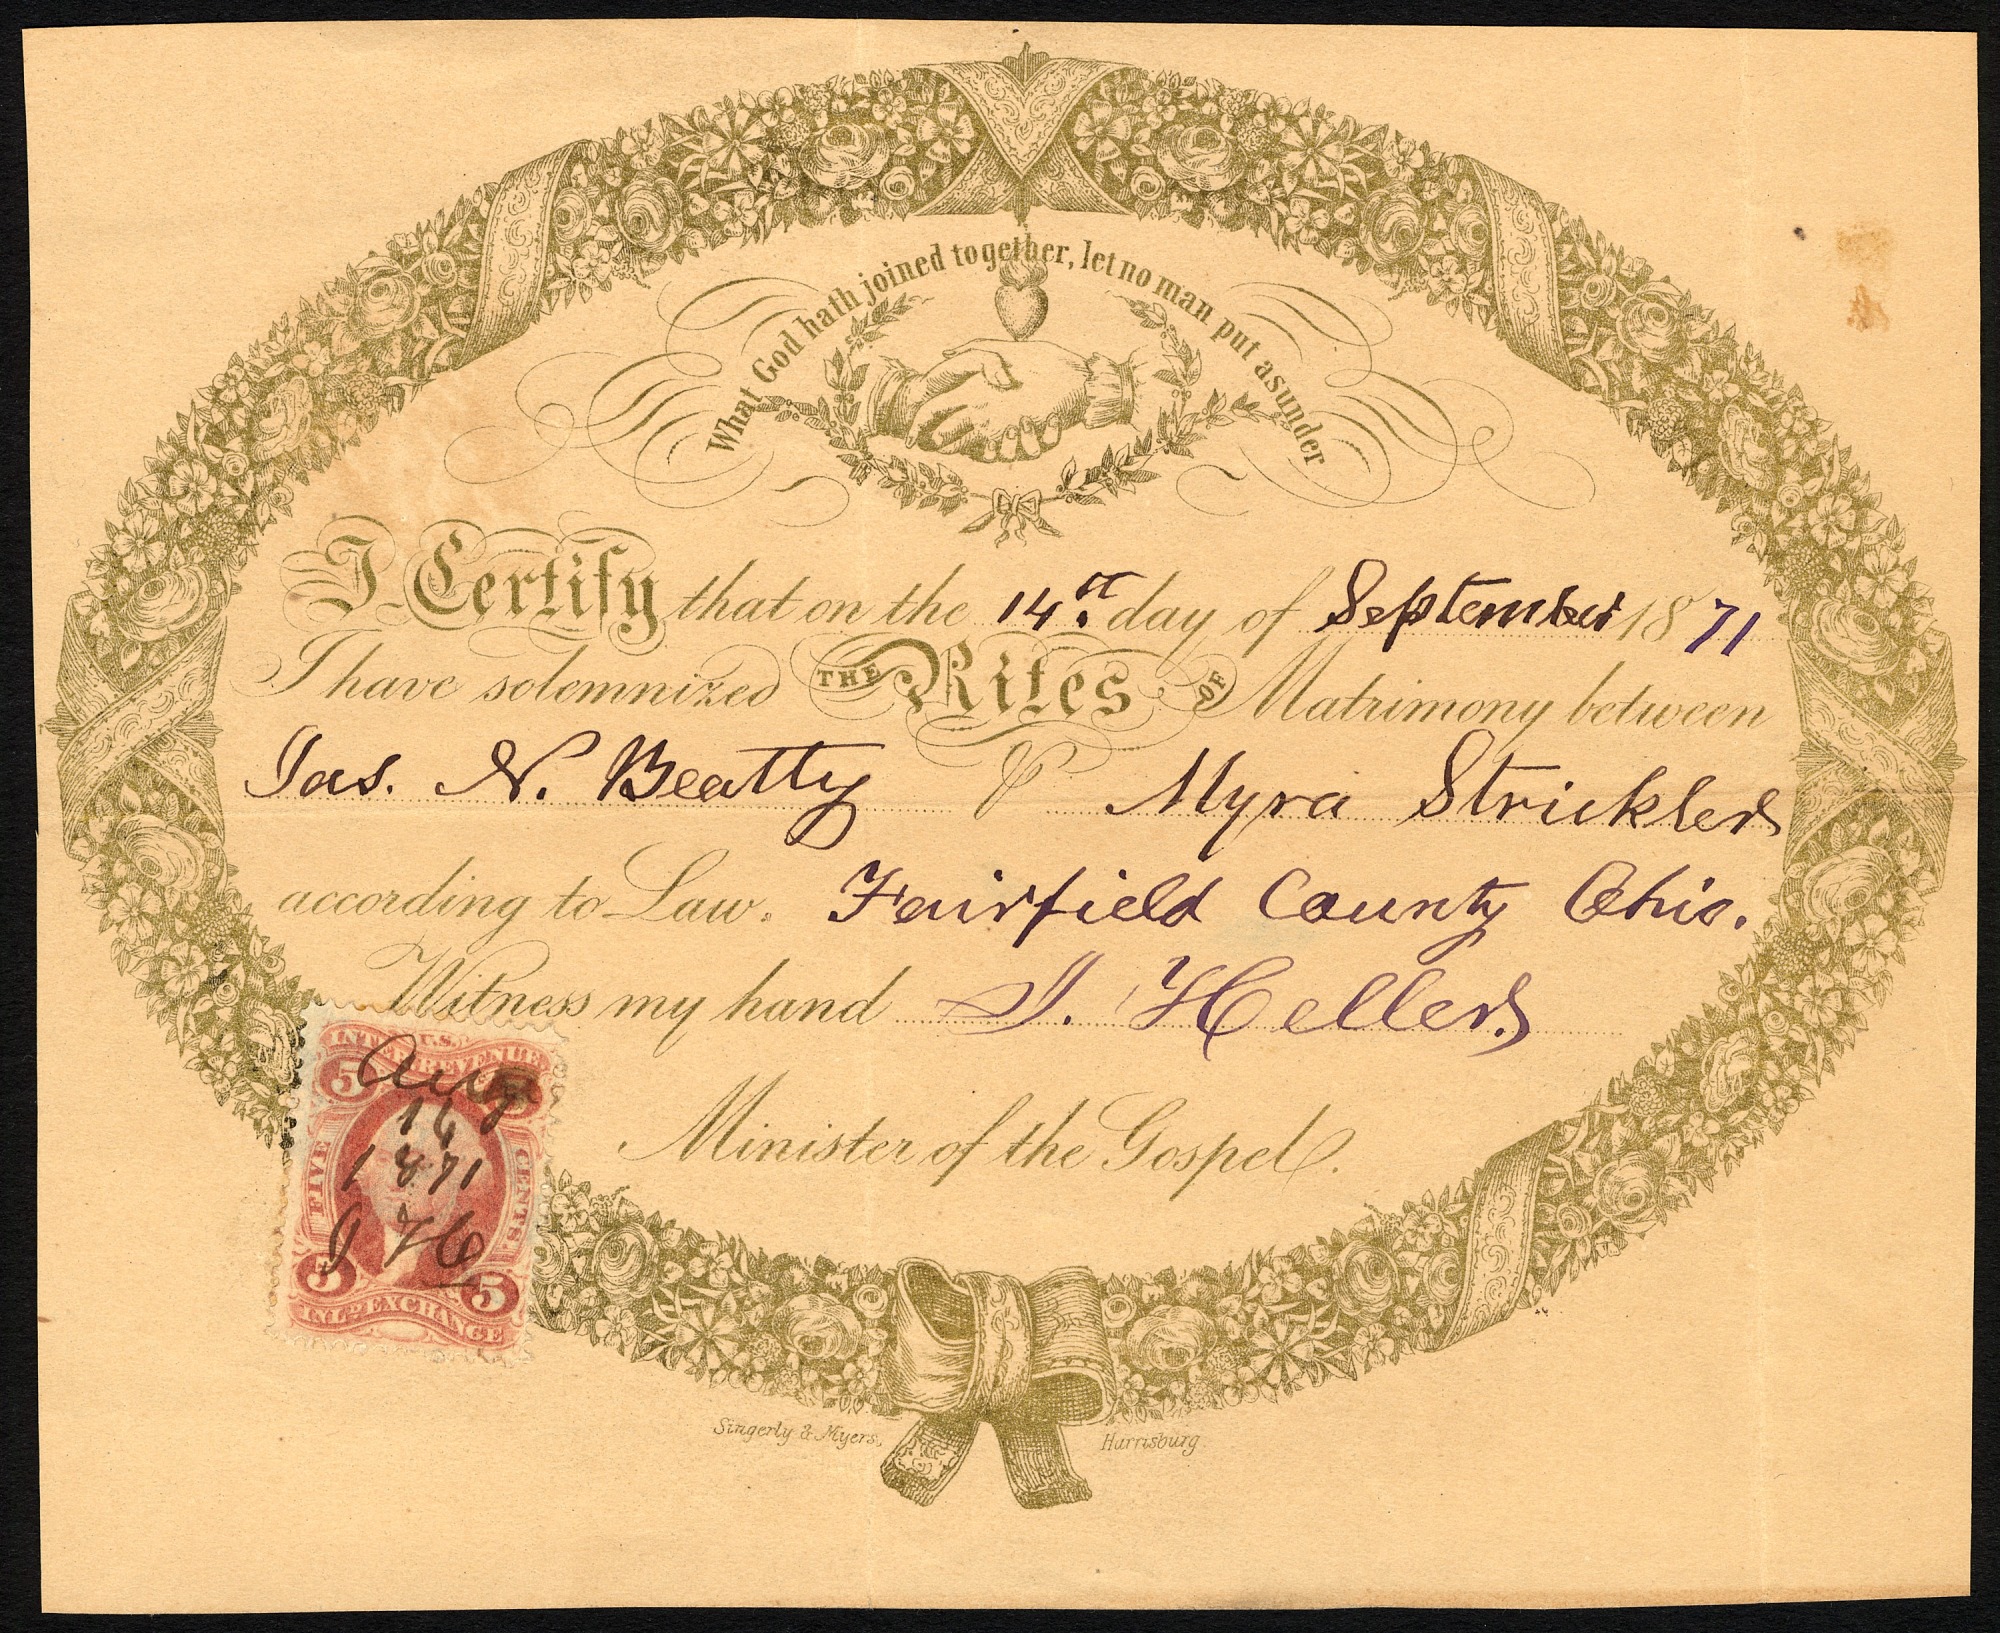 What God hath joined together, let no man put asunder
I Certify that on the 14.th day of September 1871
I have solemnized THE Rites OF Matrimony between
Jas. N. Beatty & Myra Strickler
according to Law. Fairfield County Ohio.
Witness my hand J. Heller.
Minister of the Gospel.
U.S.
INTER. REVENUE
5 5
Aug
14
1871
J H
FIVE CENTS.
5 5
INL'D EXCHANGE
Singerly & Myers, Harrisburg